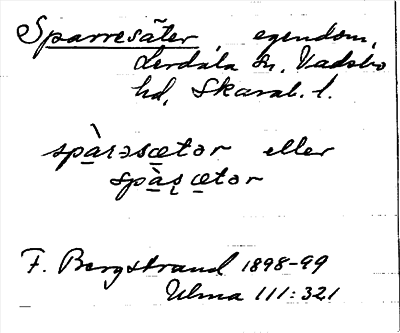 Sparresäter, egendom,
Lerdala sn, Vadsbo
hd, Skarab. l.
spàrəsætər eller
spàʂætər
F. Bergstrand 1898-99
Ulma 111:321